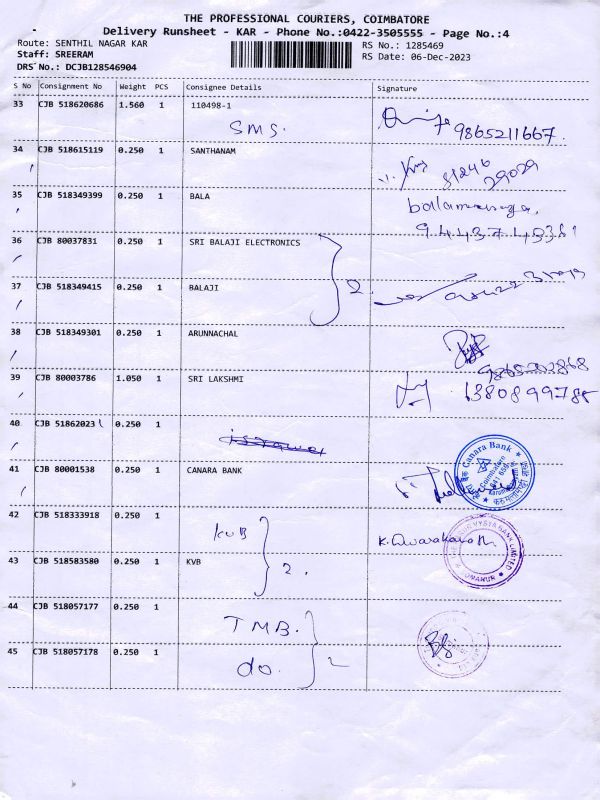 THE PROFESSIONAL COURIERS, COIMBATORE
Delivery Runsheet - KAR - Phone No.:0422-3505555 - Page No.:4
Route: SENTHIL NAGAR KAR
RS No.: 1285469
Staff: SREERAM
RS Date: 06-Dec-2023
DRS No.: DCJB128546904
S No Consignment No Weight PCS Consignee Details Signature
33 CJB 518620686 1.560 1 110498-1
SMS. 9865211667.
34 CJB 518615119 0.250 1 SANTHANAM
81246
29029
35 CJB 518349399 0.250 1 BALA
36 CJB 80037831 0.250 1 SRI BALAJI ELECTRONICS
2
37 CJB 518349415 0.250 1 BALAJI
38 CJB 518349301 0.250 1 ARUNNACHAL
39 CJB 80003786 1.050 1 SRI LAKSHMI
40 CJB 51862023 0.250 1
41 CJB 80001538 0.250 1 CANARA BANK
Canara Bank
Coimbatore
42 CJB 518333918 0.250 1
KVB
VYSYA BANK LIMITED
43 CJB 518583580 0.250 1 KVB
2.
44 CJB 518057177 0.250 1
TMB.
45 CJB 518057178 0.250 1
do. 2